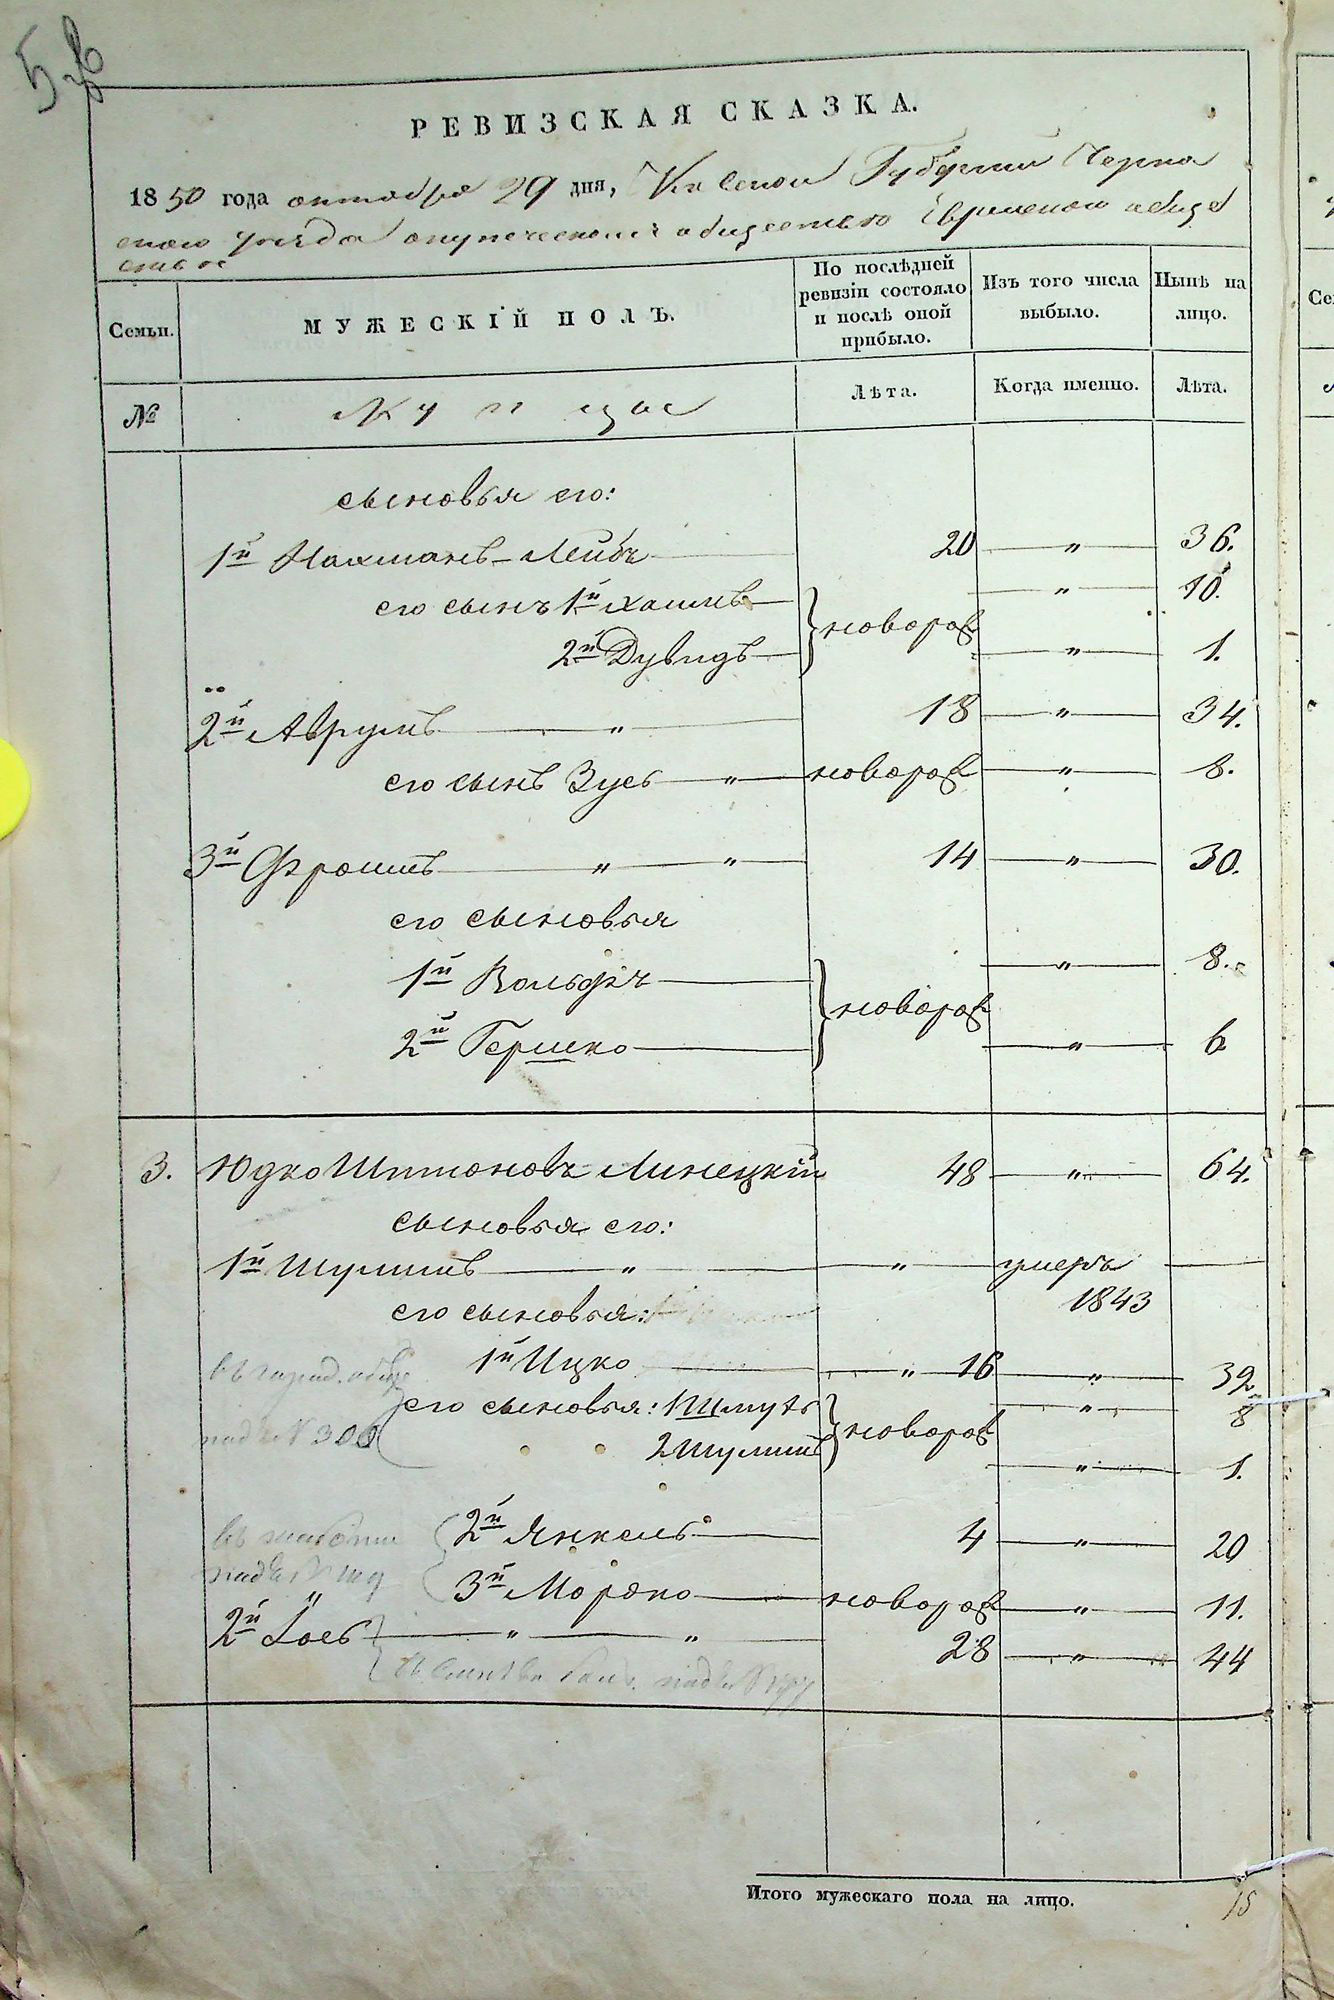 РЕВИЗСКАЯ СКАЗКА.
1850 года октября 29 дня, Киевской Губернии Черка
скаго уезда о купеческом обществе
ствое
Семьи.
МУЖЕСКІЙ ПОЛЪ.
По послѣдней ревизіи состояло и послѣ оной прибыло.
Изъ того числа выбыло.
Нынѣ на лицо.
№
Купцы
Лѣта.
Когда именно.
Лѣта.
сыновья его:
1й Нахманъ-Лейбъ 20 " 36.
его сынъ 1й Хаимъ " 10.
новорож
2й Дувидъ " 1.
2й Аврумъ " 18 " 34.
его сынъ Зусь " новорож " 8.
3й Фроимъ " " 14 " 30.
его сыновья
1й Вольфъ " 8.
новорож
2й Гершко " 6
3. Юдко Шимоновъ Линецкій 48 " 64.
сыновья его:
1й Шулимъ " " умеръ
его сыновья: 1843
1й Ицко " 16 " 32
его сыновья: 1 Шмуль " 8
новорож
над № 300
2 Шулимъ " 1.
2й Янкель 4 " 20
3й Мошко новорож " 11.
2й Іось " " 28 " 44
Итого мужескаго пола на лицо.
15